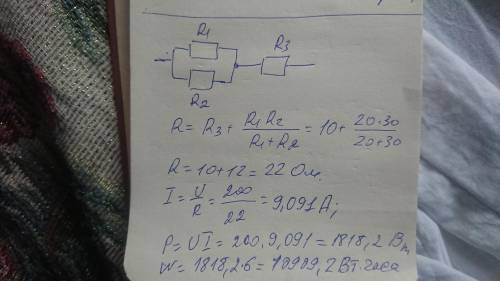 R1
R3
R2
R = R3 + R1 R2 / R1 + R2 = 10 + 20·30 / 20+30
R = 10 + 12 = 22 Ом.
I = U / R = 200 / 22 = 9,091 А;
P = UI = 200 · 9,091 = 1818,2 Вт
W = 1818,2·6 = 10909,2 Вт·часа